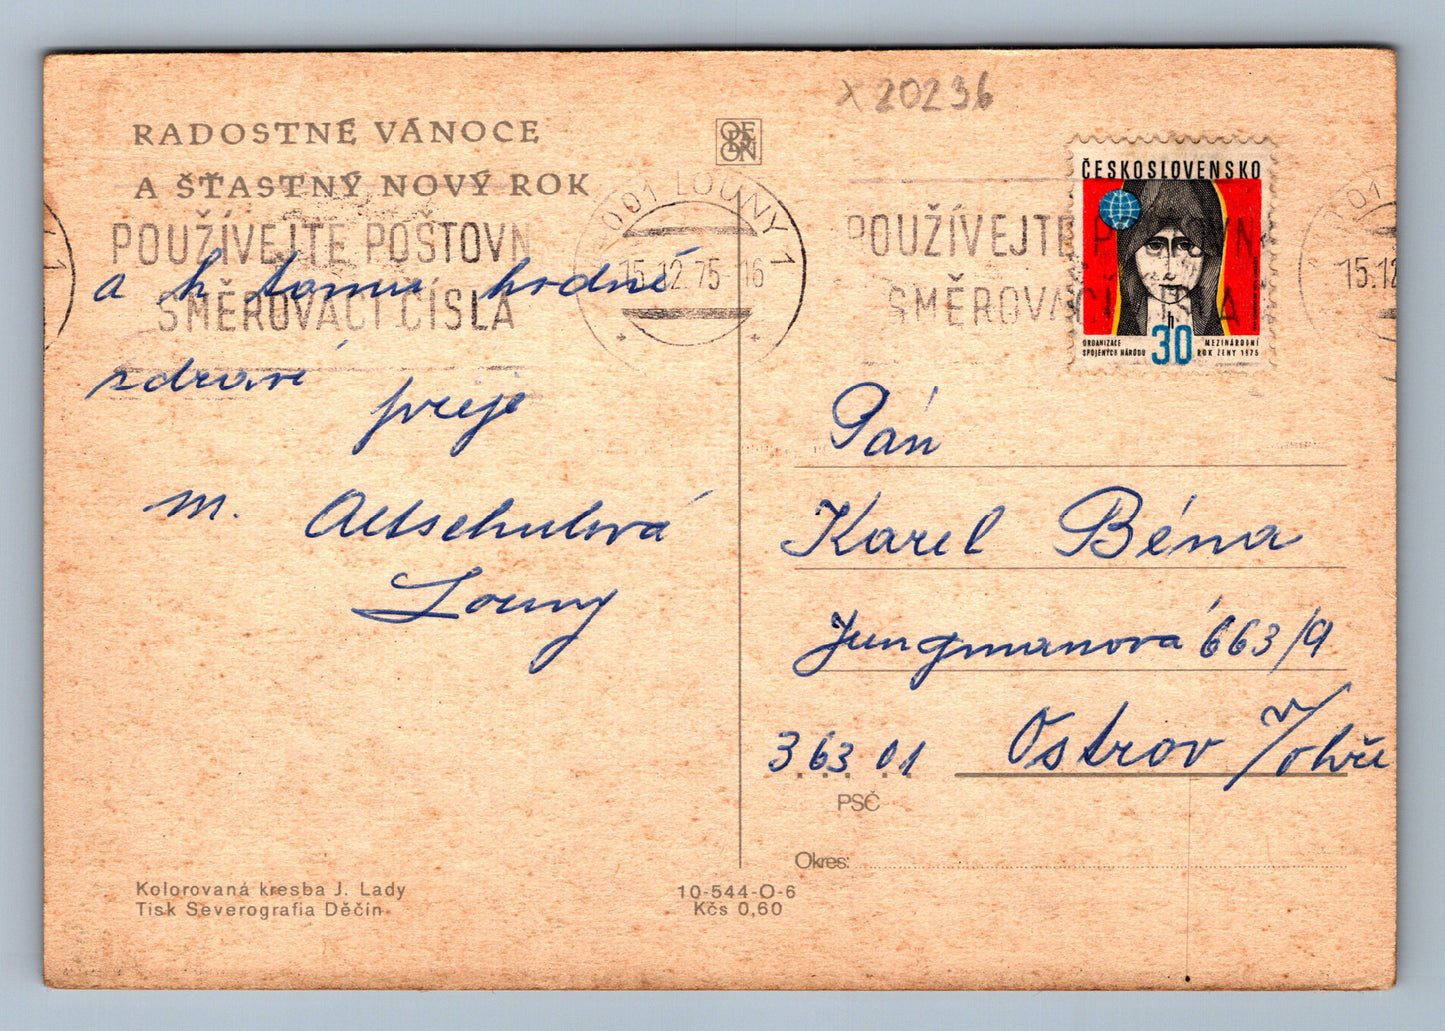 x 20236
RADOSTNÉ VÁNOCE
A ŠŤASTNÝ NOVÝ ROK
POUŽÍVEJTE POŠTOVN
SMĚROVACÍ ČÍSLA
001 LOUNY 1
15.12.75-16
a k tomu hodně
zdraví
přeje
M. Altschulová
Louny
Kolorovaná kresba J. Lady
Tisk Severografia Děčín
10-544-O-6
Kčs 0,60
ORBIS
POUŽÍVEJTE P OVN
SMĚROVACÍ ČÍSLA
15.12
ČESKOSLOVENSKO
h
30
ORGANIZACE
SPOJENÝCH NÁRODŮ
MEZINÁRODNÍ
ROK ŽENY 1975
Pán
Karel Béna
Jungmanová 663/9
363 01 Ostrov n/Ohře
PSČ
Okres: